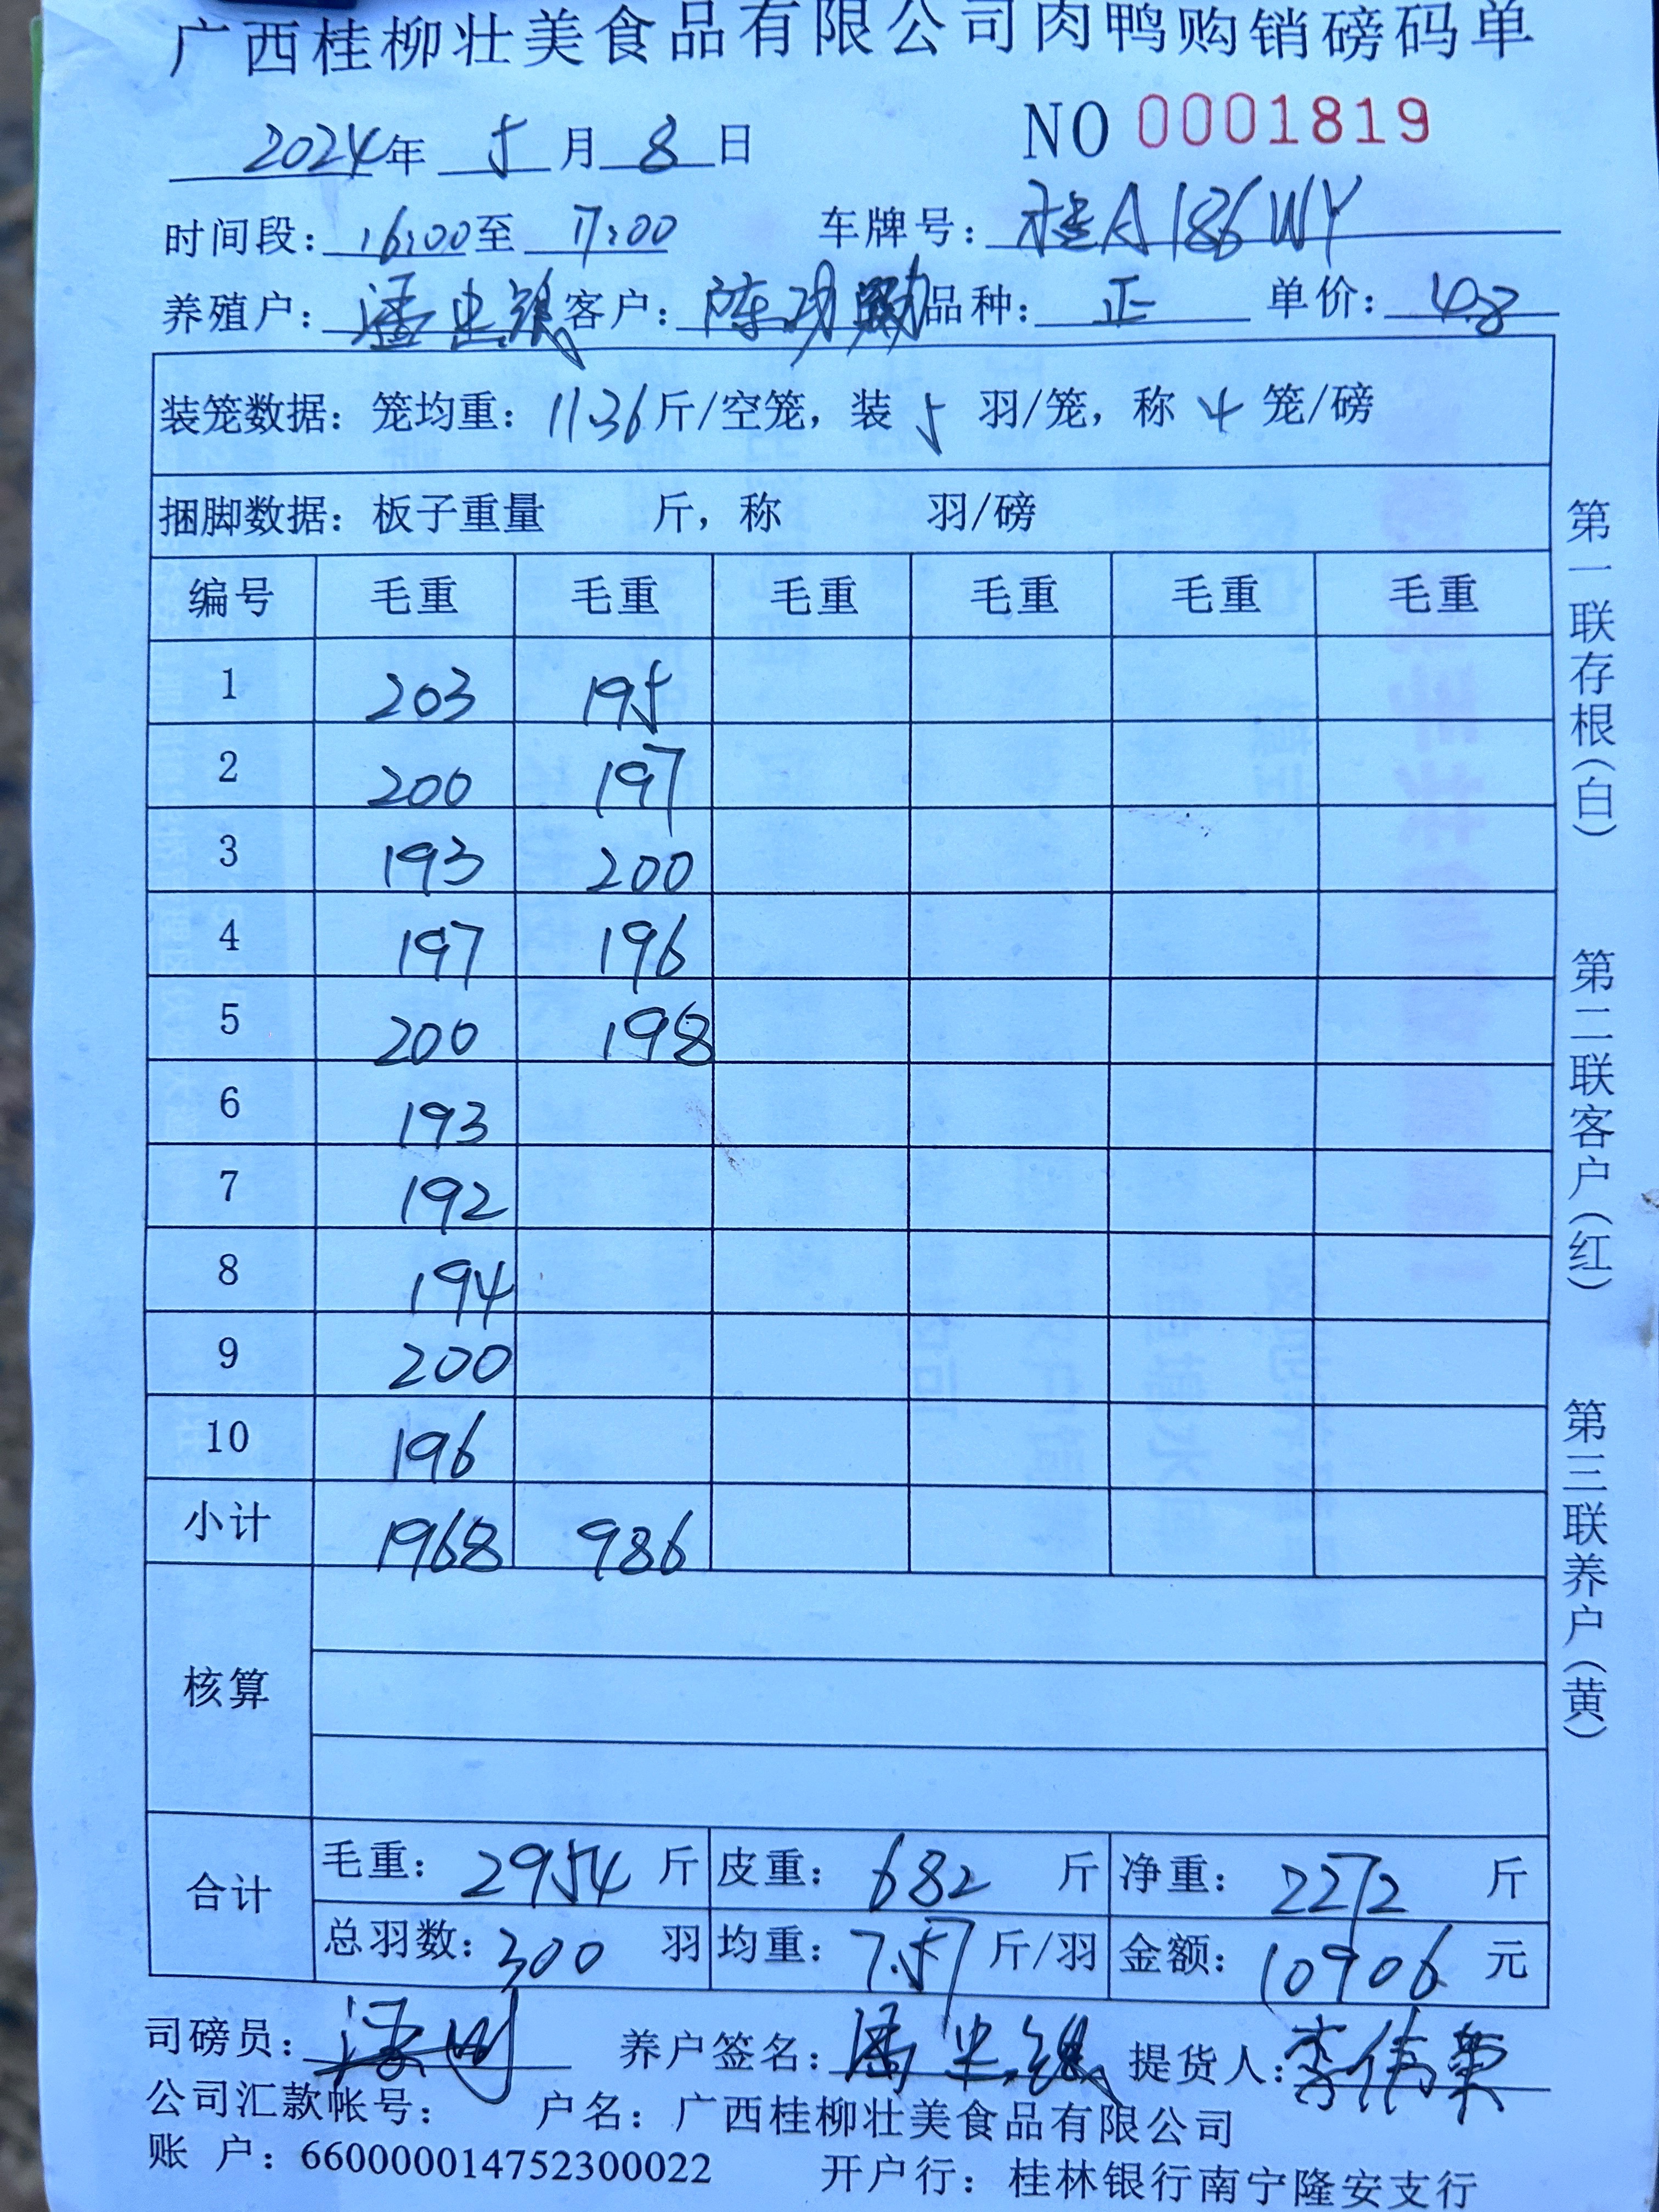 广西桂柳壮美食品有限公司肉鸭购销磅码单
2024年 5月 8日 NO 0001819
时间段：16:00至 17:00 车牌号：桂A186WY
养殖户：潘忠银 客户：陈功 品种：正 单价：4.8
装笼数据：笼均重：11.36斤/空笼，装 5 羽/笼，称 4 笼/磅
捆脚数据：板子重量 斤，称 羽/磅
编号 毛重 毛重 毛重 毛重 毛重 毛重
1 203 195
2 200 197
3 193 200
4 197 196
5 200 198
6 193
7 192
8 194
9 200
10 196
小计 1968 986
核算
合计 毛重：2954 斤 皮重：682 斤 净重：2272 斤
总羽数：300 羽 均重：7.57 斤/羽 金额：10906 元
司磅员： 养户签名：潘忠银 提货人：李伟荣
公司汇款帐号： 户名：广西桂柳壮美食品有限公司
账 户：660000014752300022 开户行：桂林银行南宁隆安支行
第一联存根（白）
第二联客户（红）
第三联养户（黄）